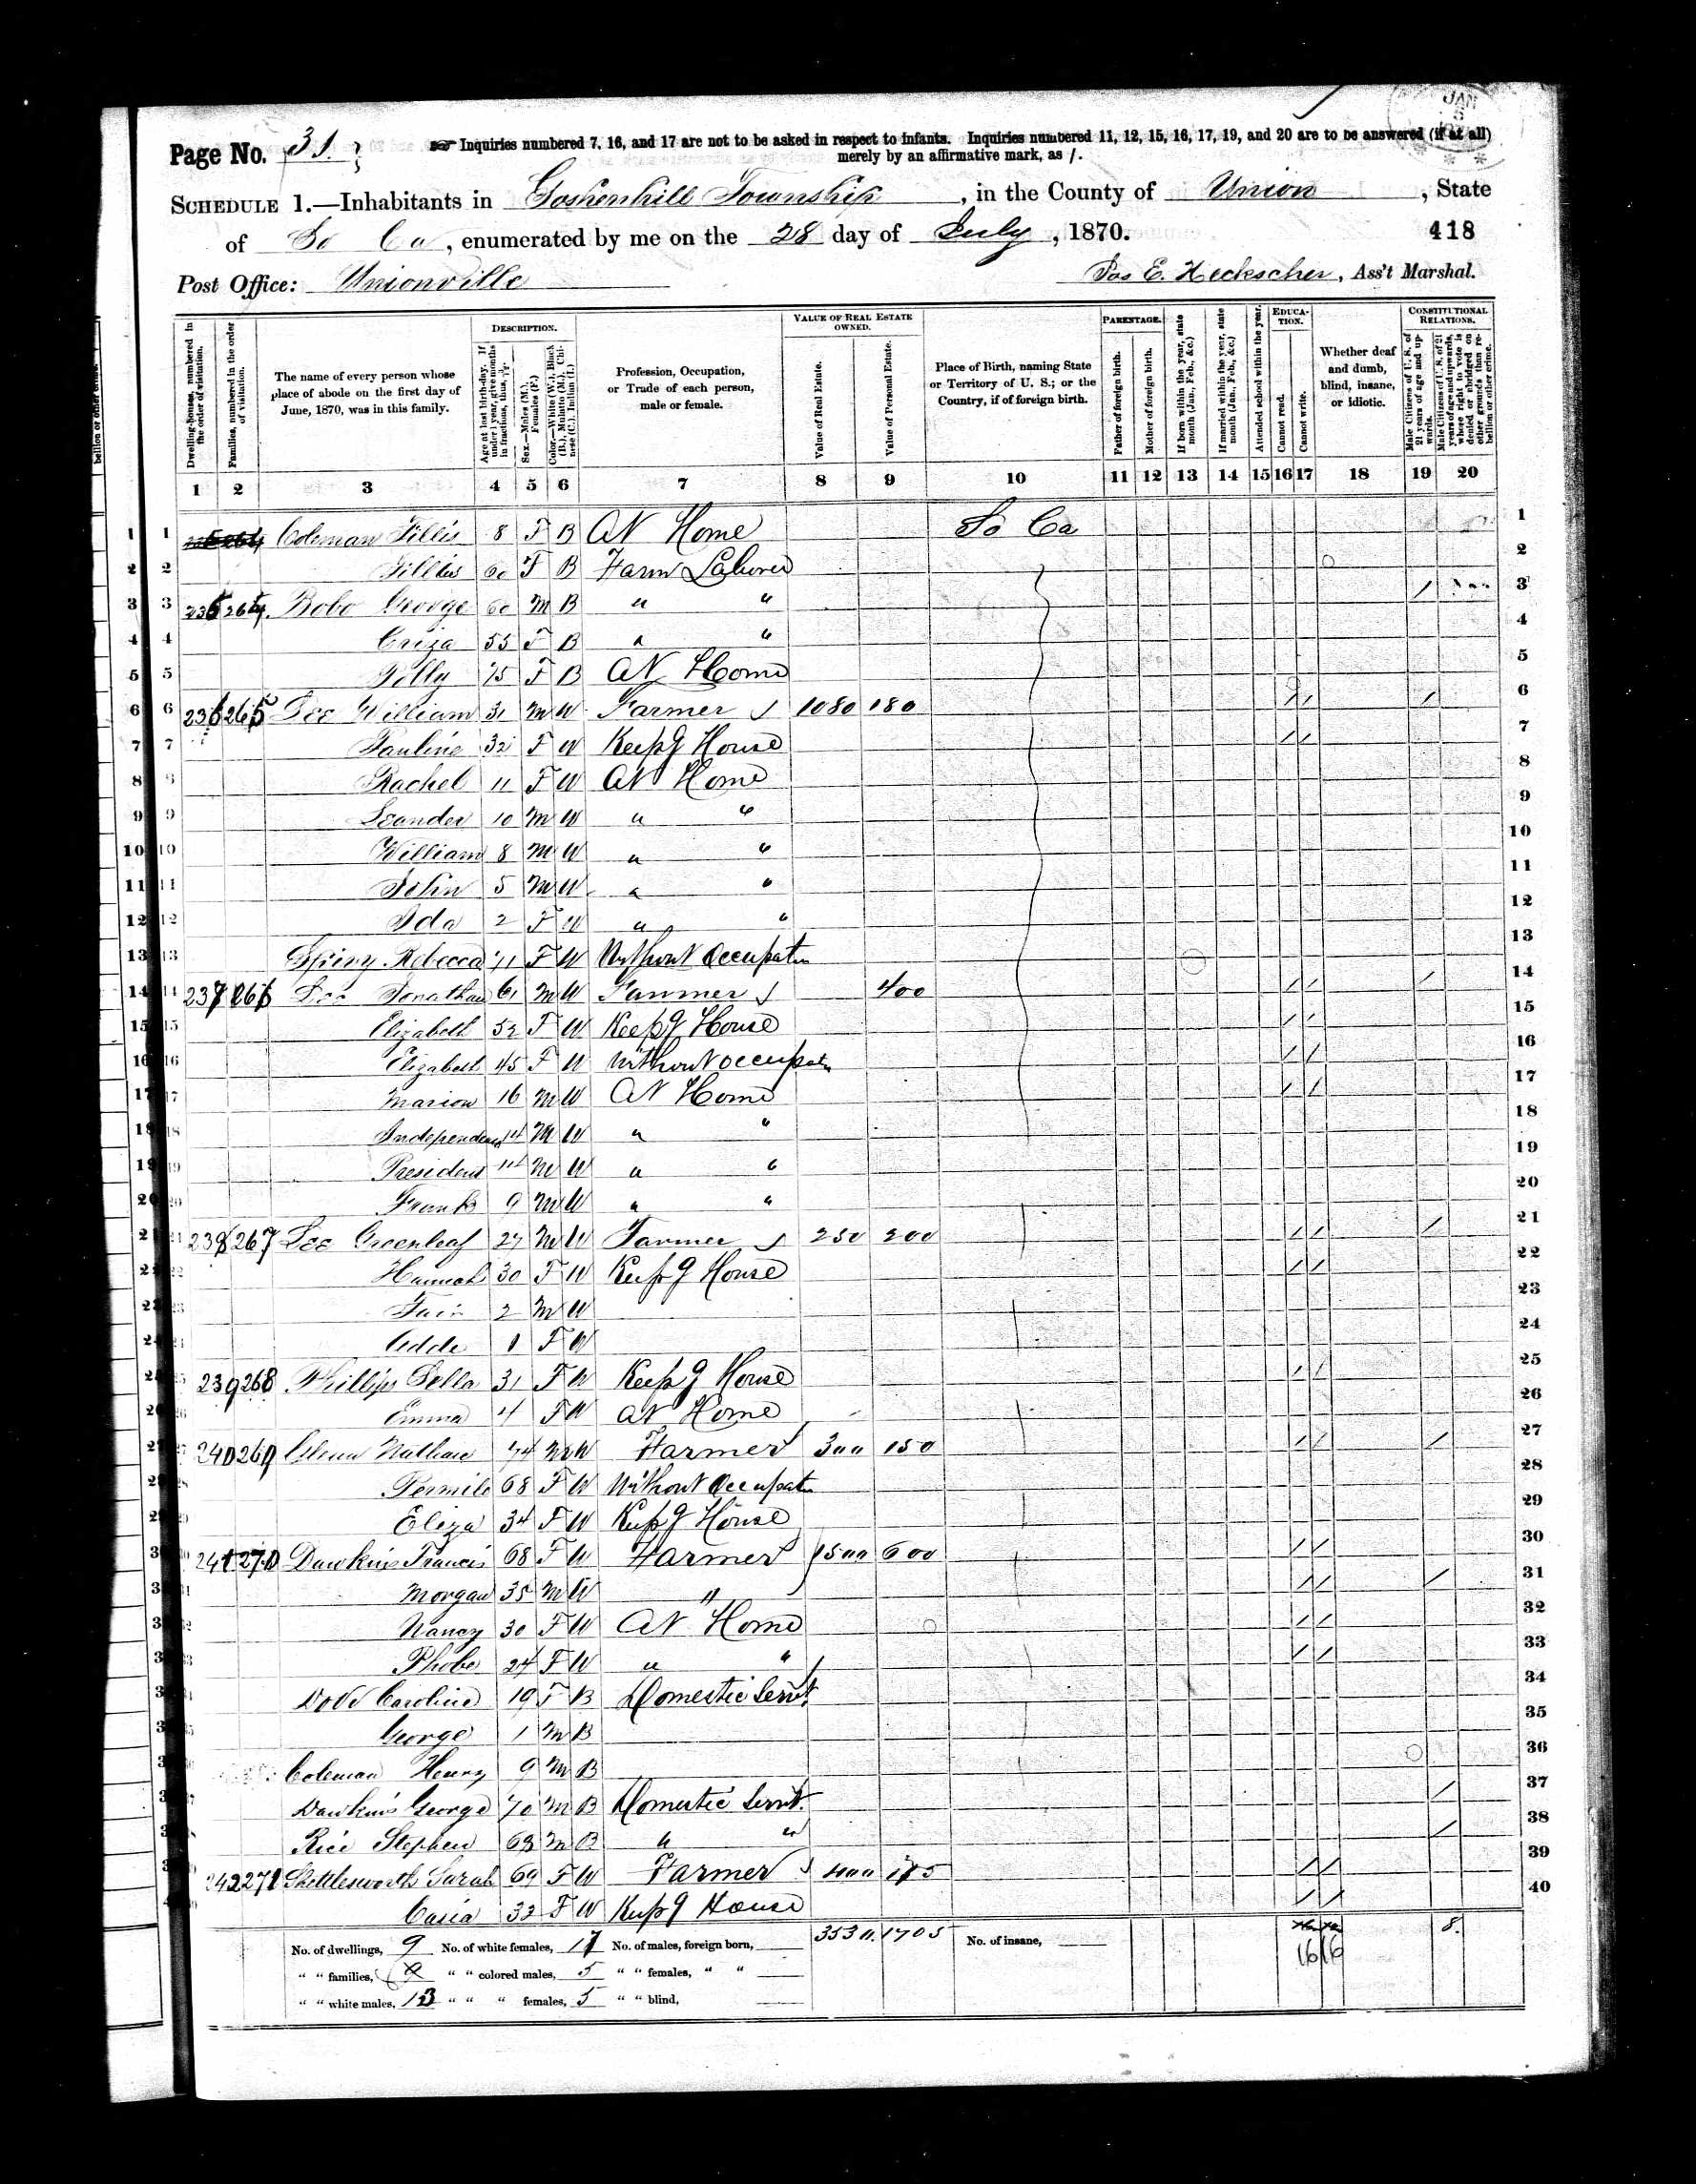 Page No. 31
Inquiries numbered 7, 16, and 17 are not to be asked in respect to infants. Inquiries numbered 11, 12, 15, 16, 17, 19, and 20 are to be answered (if at all)
merely by an affirmative mark, as /.
JAN
SCHEDULE 1.—Inhabitants in Goshenhill Township, in the County of Union, State
of So Ca, enumerated by me on the 28 day of July, 1870.
418
Post Office: Unionville
Jas E. Heckscher, Ass't Marshal.
Dwelling-houses, numbered in the order of visitation.
Families, numbered in the order of visitation.
The name of every person whose place of abode on the first day of June, 1870, was in this family.
DESCRIPTION.
Age at last birth-day. If under 1 year, give months in fractions, thus,
Sex.—Males (M.), Females (F.)
Color.—White (W.), Black (B.), Mulatto (M.), Chinese (C.), Indian (I.)
Profession, Occupation, or Trade of each person, male or female.
VALUE OF REAL ESTATE OWNED.
Value of Real Estate.
Value of Personal Estate.
Place of Birth, naming State or Territory of U. S.; or the Country, if of foreign birth.
PARENTAGE.
Father of foreign birth.
Mother of foreign birth.
If born within the year, state month (Jan. Feb., &c.)
If married within the year, state month (Jan. Feb., &c.)
Attended school within the year.
EDUCATION.
Cannot read.
Cannot write.
Whether deaf and dumb, blind, insane, or idiotic.
CONSTITUTIONAL RELATIONS.
Male Citizens of U. S. of 21 years of age and upwards.
Male Citizens of U. S. of 21 years of age and upwards, whose right to vote is denied or abridged on other grounds than rebellion or other crime.
1 2 3 4 5 6 7 8 9 10 11 12 13 14 15 16 17 18 19 20
1 Coleman Tillis 8 F B At Home So Ca 1
2 Tillis 60 F B Farm Laborer 2
3 235 264 Bobo George 60 M B " " / 3
4 Criza 55 F B " " 4
5 Tilly 75 F B At Home 5
6 236 265 Lee William 31 M W Farmer 1080 180 / / / 6
7 Pauline 32 F W Keepg House / / 7
8 Rachel 11 F W At Home 8
9 Leander 10 M W " " 9
10 William 8 M W " " 10
11 John 5 M W " " 11
12 Ida 2 F W " " 12
13 Rebecca 71 F W Without Occupatn 13
14 237 266 Lee Jonathan 61 M W Farmer 400 / / / 14
15 Elizabeth 52 F W Keepg House / / 15
16 Elizabeth 45 F W Without occupatn / / 16
17 Marion 16 M W At Home / / 17
18 Independence 14 M W " " 18
19 President 14 M W " " 19
20 Frank 9 M W " " 20
21 238 267 Lee Greenleaf 27 M W Farmer 250 200 / / / 21
22 Hannah 30 F W Keepg House / / 22
23 Fair 2 M W 23
24 Adde 1 F W 24
25 239 268 Phillips Sella 31 F W Keepg House / / 25
26 Emma 4 F W At Home 26
27 240 269 Glenn Nathan 74 M W Farmer 300 150 / / / 27
28 Permile 68 F W Without Occupatn 28
29 Eliza 34 F W Keepg House 29
30 241 270 Dawkins Francis 68 F W Farmer 1500 600 / / 30
31 Morgan 35 M W " / / / 31
32 Nancy 30 F W At Home / / 32
33 Phobe 24 F W " " / / 33
34 Caroline 19 F B Domestic Servt. 34
35 George 1 M B 35
36 Coleman Henry 9 M B 36
37 Dawkins George 70 M B Domestic Servt. / 37
38 Rice Stephen 68 M B " " / 38
39 242 271 Shettlesworth Sarah 69 F W Farmer 400 175 / / 39
40 Casia 32 F W Keepg House / / 40
No. of dwellings, 9 No. of white females, 17 No. of males, foreign born, 3530 1705 No. of insane, 16 16 8.
" " families, 9 " " colored males, 5 " " females, " "
" " white males, 13 " " " females, 5 " " blind,